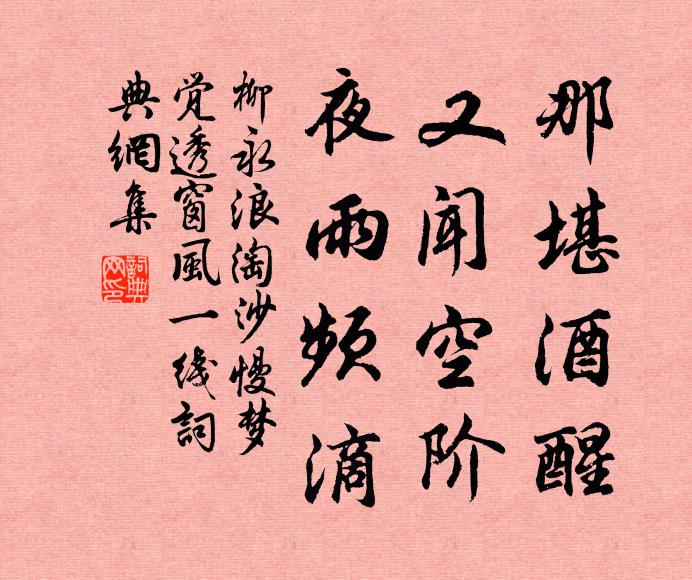 那堪酒醒
又闻空阶
夜雨频滴
柳永浪淘沙慢梦
觉透窗風一线詞
典網集
詞典
网印